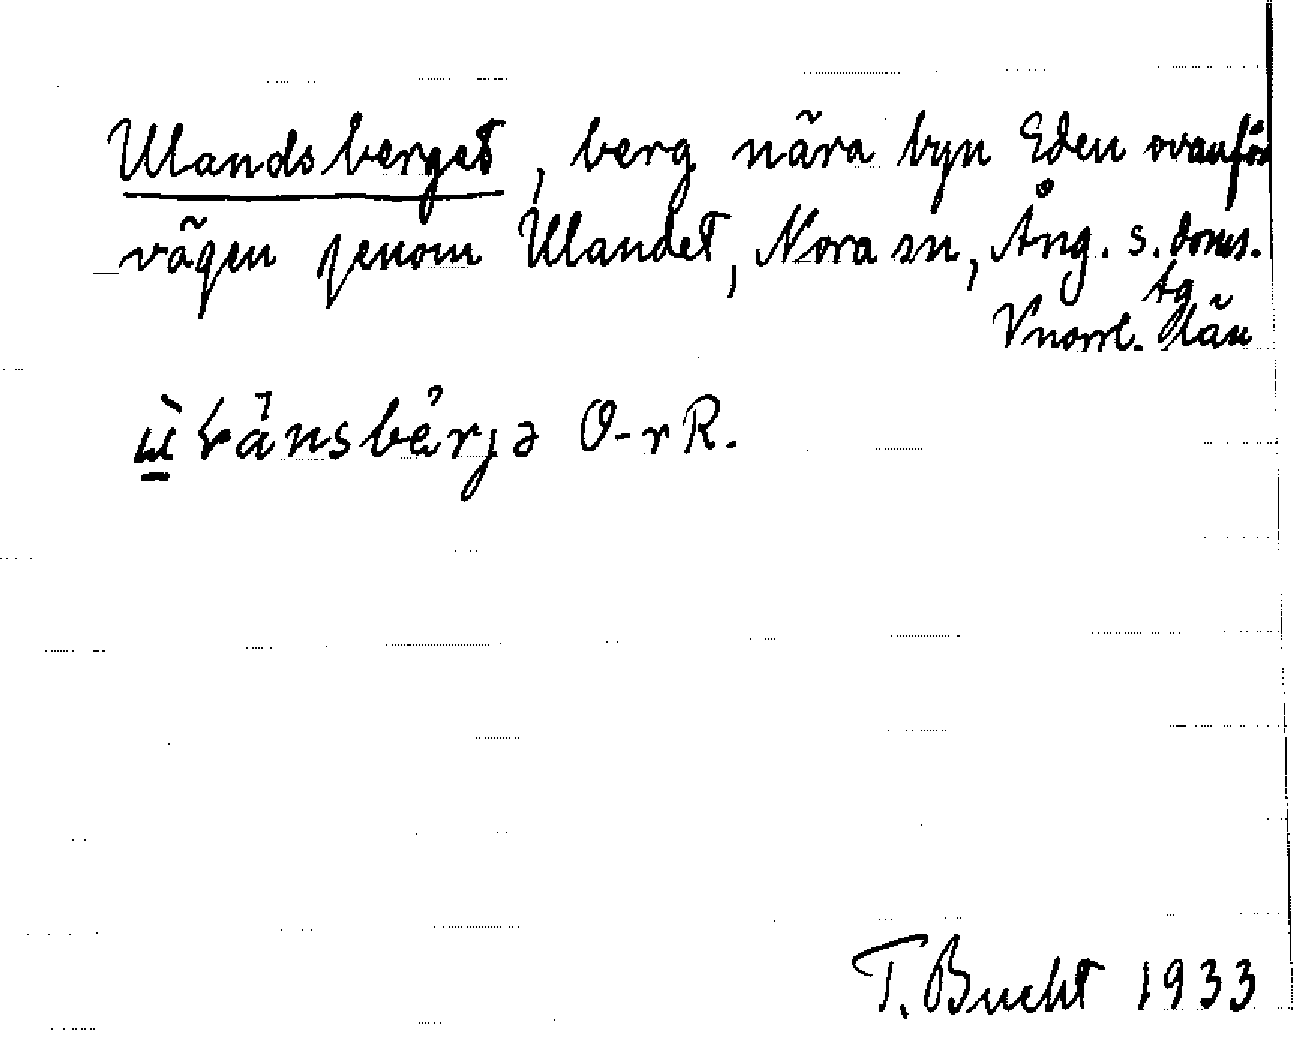 Ulandsberget, berg nära byn Eden ovanför
vägen genom Ulandet, Nora sn, Ång. s. doms.
tg
Vnorrl. län
O-rR.
T. Bucht 1933